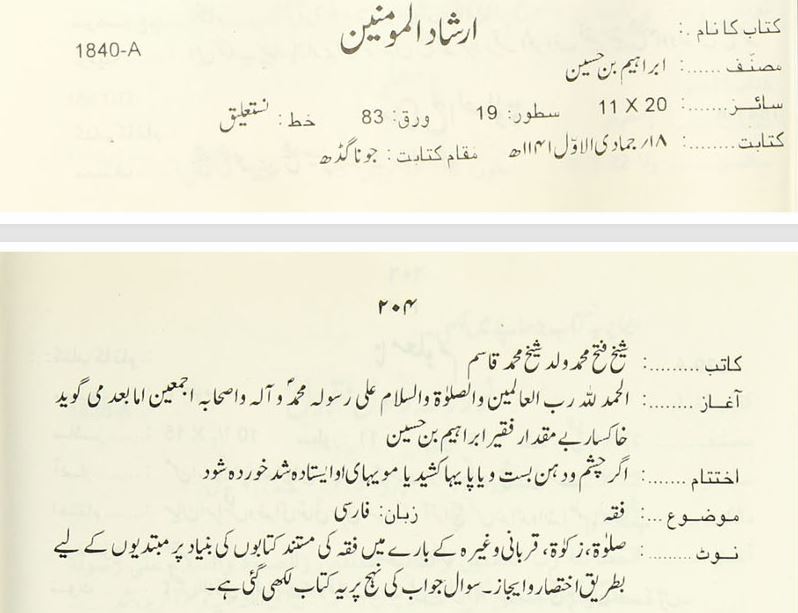 کتاب کا نام .: ارشاد المومنین 1840-A
مصنّف ......: ابراہیم بن حسین
سائــز.......: 11 X 20 سطور: 19 ورق: 83 خط: نستعلیق
کتابت........: ۱۸/ جمادی الاوّل ۱۱۴۱ھ مقام کتابت: جوناگڈھ
۲۰۴
کاتب.........: شیخ فتح محمد ولد شیخ محمد قاسم
آغــاز ........: الحمد للہ رب العالمین والصلوٰۃ والسلام علی رسولہ محمدؐ و آلہ واصحابہ اجمعین اما بعد می گوید
خاکسار بے مقدار فقیر ابراہیم بن حسین
اختتام .......: اگر چشم و دہن بست و یا پا یہا کشید یا مویہای او ایستادہ شد خوردہ شود
موضــوع ...: فقہ زبان: فارسی
نــوٹ .........: صلوٰۃ، زکوٰۃ، قربانی وغیرہ کے بارے میں فقہ کی مستند کتابوں کی بنیاد پر مبتدیوں کے لیے
بطریق اختصار وایجاز۔ سوال جواب کی نہج پر یہ کتاب لکھی گئی ہے۔